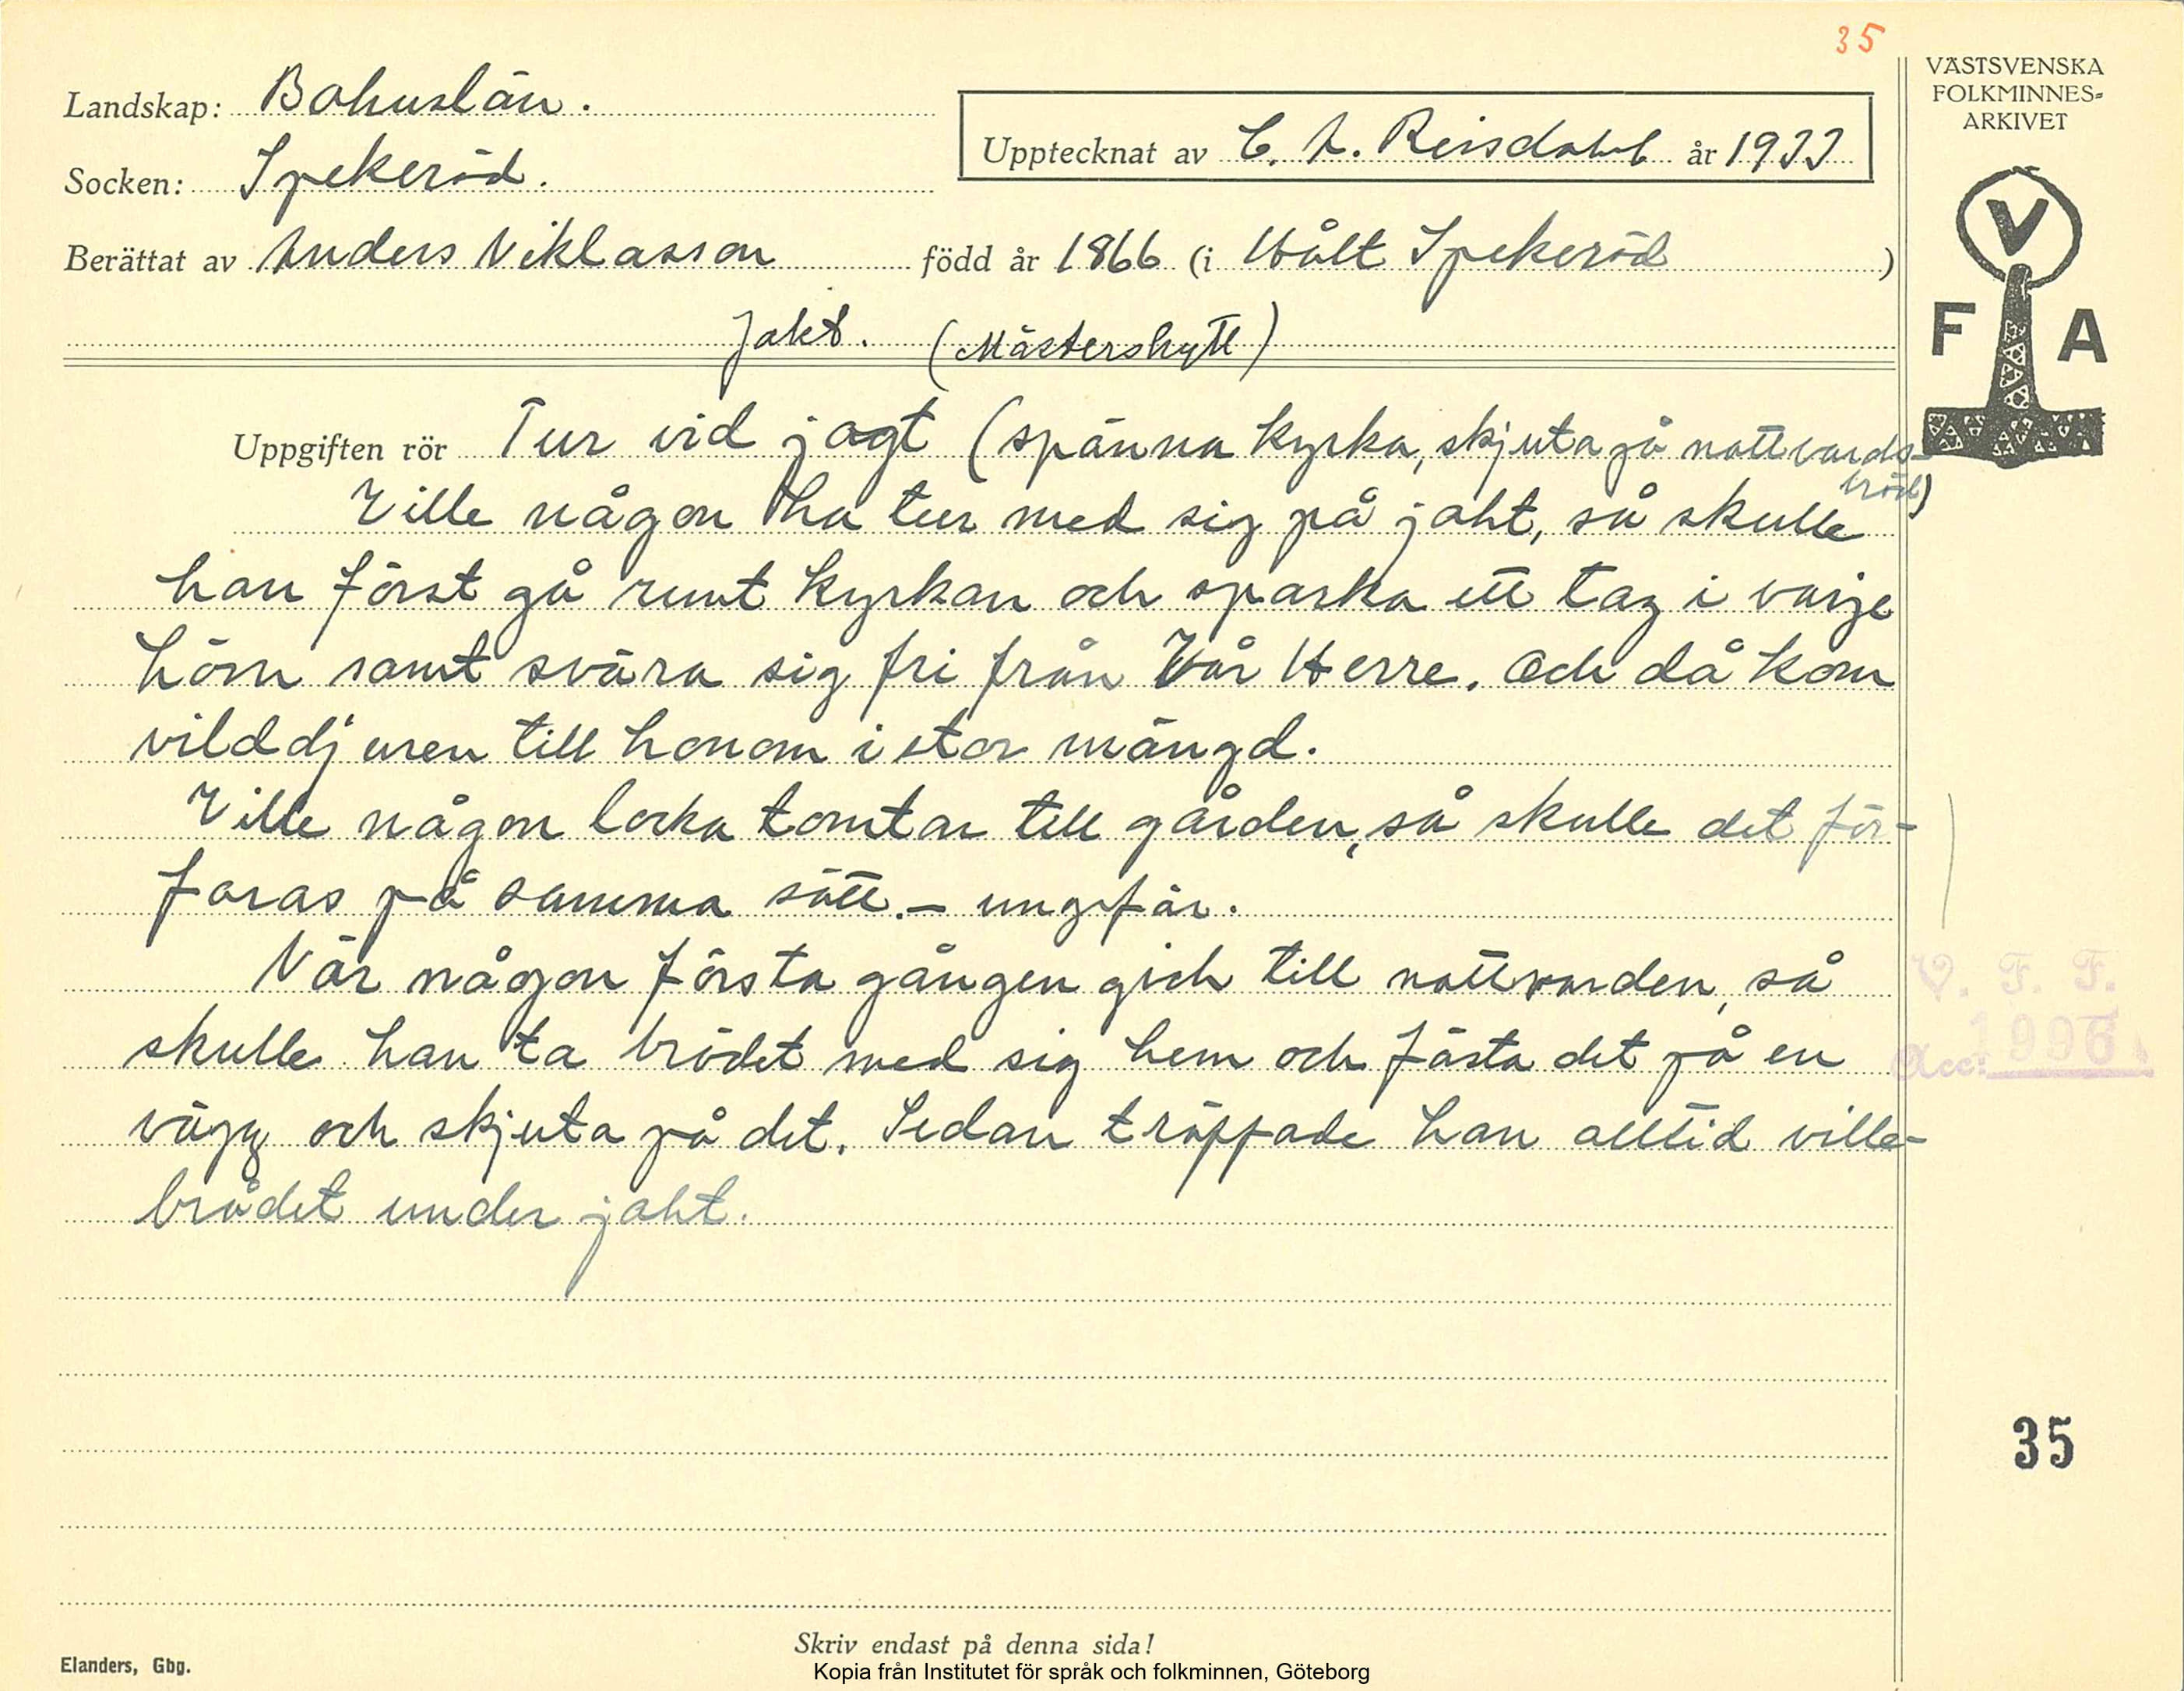 35
VÄSTSVENSKA
FOLKMINNES-
ARKIVET
V
F A
Landskap: Bohuslän.
Upptecknat av C. A. Reisdahl år 1933
Socken: Spekeröd.
Berättat av Anders Niklasson född år 1866 (i Hålt Spekeröd)
Jakt. (Mästerskytt)
Uppgiften rör Tur vid jagt (spänna kyrka, skjuta på nattvards-
bröd)
Ville någon ha tur med sig på jakt, så skulle
han först gå runt kyrkan och sparka ett tag i varje
hörn samt svära sig fri från Vår Herre. Och då kom
vilddjuren till honom i stor mängd.
Ville någon locka tomtar till gården, så skulle det för-
faras på samma sätt. – ungefär.
När någon första gången gick till nattvarden, så
skulle han ta brödet med sig hem och fästa det på en
vägg och skjuta på det. Sedan träffade han alltid ville-
brådet under jakt.
V. F. F.
Acc: 1996.
35
Skriv endast på denna sida!
Elanders, Gbg.
Kopia från Institutet för språk och folkminnen, Göteborg